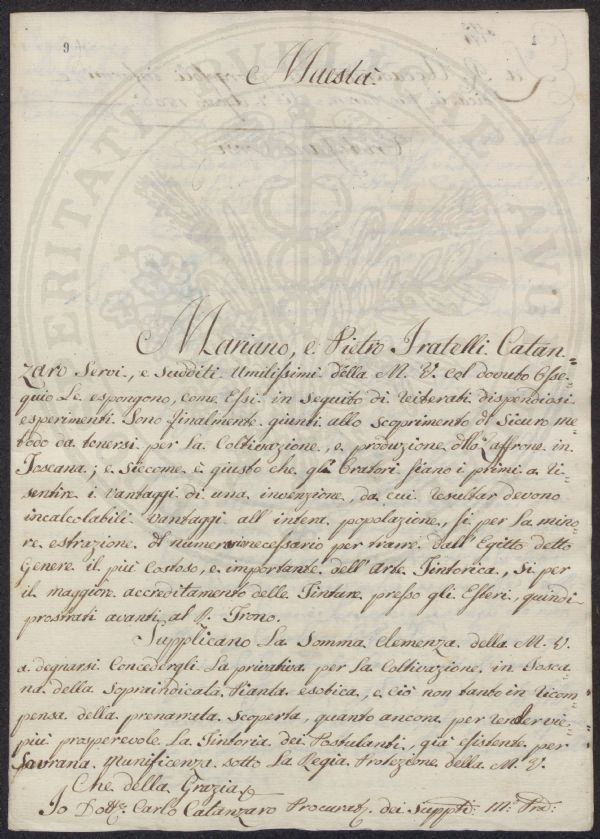 9
1
Maestà
Mariano, e Pietro Fratelli Catan=
zaro Servi, e sudditi Umilissimi della M. V. col dovuto Osse=
quio Le espongono, come Essi in seguito di reiterati dispendiosi
esperimenti Sono finalmente giunti allo scoprimento di Sicuro me=
todo da tenersi per la Coltivazione, e produzione dello Zaffrone in
Toscana; e siccome è giusto che gli Oratori siano i primi a ri=
sentire i vantaggi di una invenzione, da cui resultar devono
incalcolabili vantaggi all' intera popolazione, si per la mino=
re estrazione di numerario necessario per trarre dall' Egitto detto
Genere il più Costoso, e importante dell' Arte Tintoria, si per
il maggiore accreditamento delle Tinture presso gli Esteri, quindi
prostrati avanti al R. Trono.
Supplicano La Somma Clemenza della M. V.
a degnarsi Concedergli La privativa per la Coltivazione in Tosca=
na della Sopraindicata Pianta esotica, e ciò non tanto in ricom=
pensa della prenarrata Scoperta, quanto ancora per render vie=
più prosperevole La Tintoria dei Postulanti, già esistente per
Sovrana Munificenza sotto La Regia Protezione della M. V.
Che della Grazia
Io Dotte. Carlo Catanzaro Procurat. dei Suppti.
VERITATI
PVBLICAE
AVG